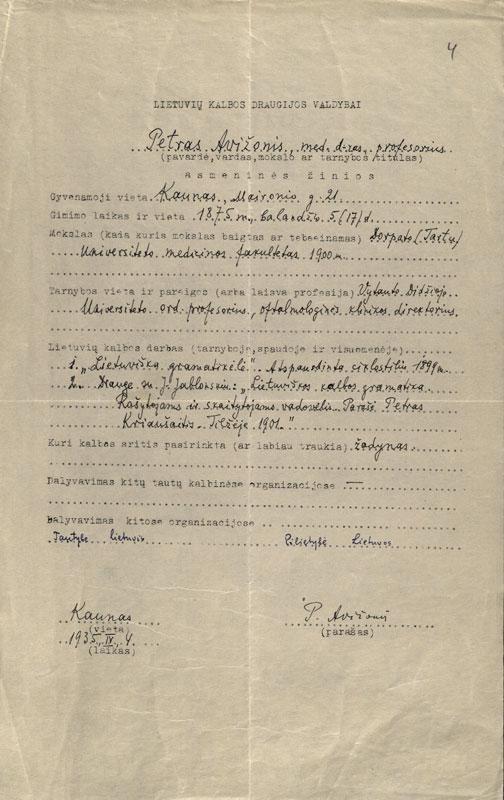 4
LIETUVIŲ KALBOS DRAUGIJOS VALDYBAI
Petras Avižonis, med. d-ras, profesorius
(pavardė, vardas, mokslo ar tarnybos titulas)
asmeninės žinios
Gyvenamoji vieta Kaunas, Maironio g. 21
Gimimo laikas ir vieta 1875 m. balandžio 5/17/d.
Mokslas (kada kuris mokslas baigtas ar tebeeinamas) Dorpato (Tartu)
Universiteto medicinos fakultetas 1900 m.
Tarnybos vieta ir pareigos (arba laisva profesija) Vytauto Didžiojo
Universiteto ord. profesorius, oftalmologinės klinikos direktorius.
Lietuvių kalbos darbas (tarnyboje, spaudoje ir visuomenėje)
1. „Lietuviška gramatikėlė". Atspausdinta ciklostiliu 1899 m.
2. Drauge su J. Jablonskiu: „Lietuviškos kalbos gramatika.
Rašytojams ir skaitytojams vadovėlis. Parašė Petras
Kriaušaitis. Tilžėje 1901."
Kuri kalbos sritis pasirinkta (ar labiau traukia) žodynas
Dalyvavimas kitų tautų kalbinėse organizacijose —
Dalyvavimas kitose organizacijose
Tautybė lietuvis Pilietybė Lietuvos
Kaunas P. Avižonis
(vieta) (parašas)
1935.IV.4
(laikas)